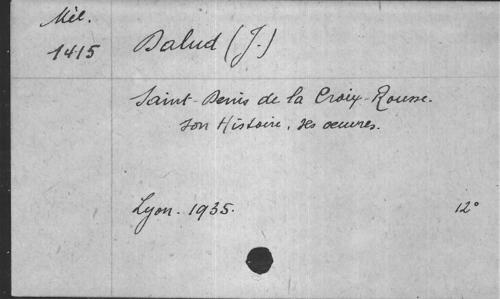 Mél.
1415
Balud (J.)
Saint-Denis de la Croix-Rousse.
son Histoire, ses œuvres.
Lyon. 1935.
12°